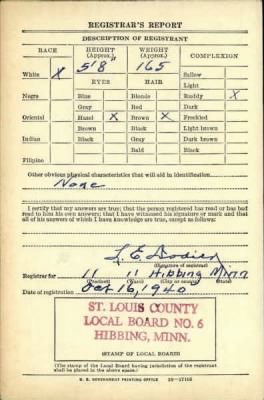 REGISTRAR'S REPORT
DESCRIPTION OF REGISTRANT
RACE HEIGHT (Approx.) WEIGHT (Approx.) COMPLEXION
White X 5'8" 165 Sallow
EYES HAIR Light
Negro Blue Blonde Ruddy X
Gray Red Dark
Oriental Hazel X Brown X Freckled
Brown Black Light brown
Indian Black Gray Dark brown
Bald Black
Filipino
Other obvious physical characteristics that will aid in identification
None
I certify that my answers are true; that the person registered has read or has had
read to him his own answers; that I have witnessed his signature or mark and that
all of his answers of which I have knowledge are true, except as follows:
L. E.
(Signature of registrar)
Registrar for 11 11 Hibbing Minn
(Precinct) (Ward) (City or county) (State)
Date of registration Oct 16, 1940
ST. LOUIS COUNTY
LOCAL BOARD NO. 6
HIBBING, MINN.
(STAMP OF LOCAL BOARD)
(The stamp of the Local Board having jurisdiction of the registrant
shall be placed in the above space.)
U. S. GOVERNMENT PRINTING OFFICE 16-17105